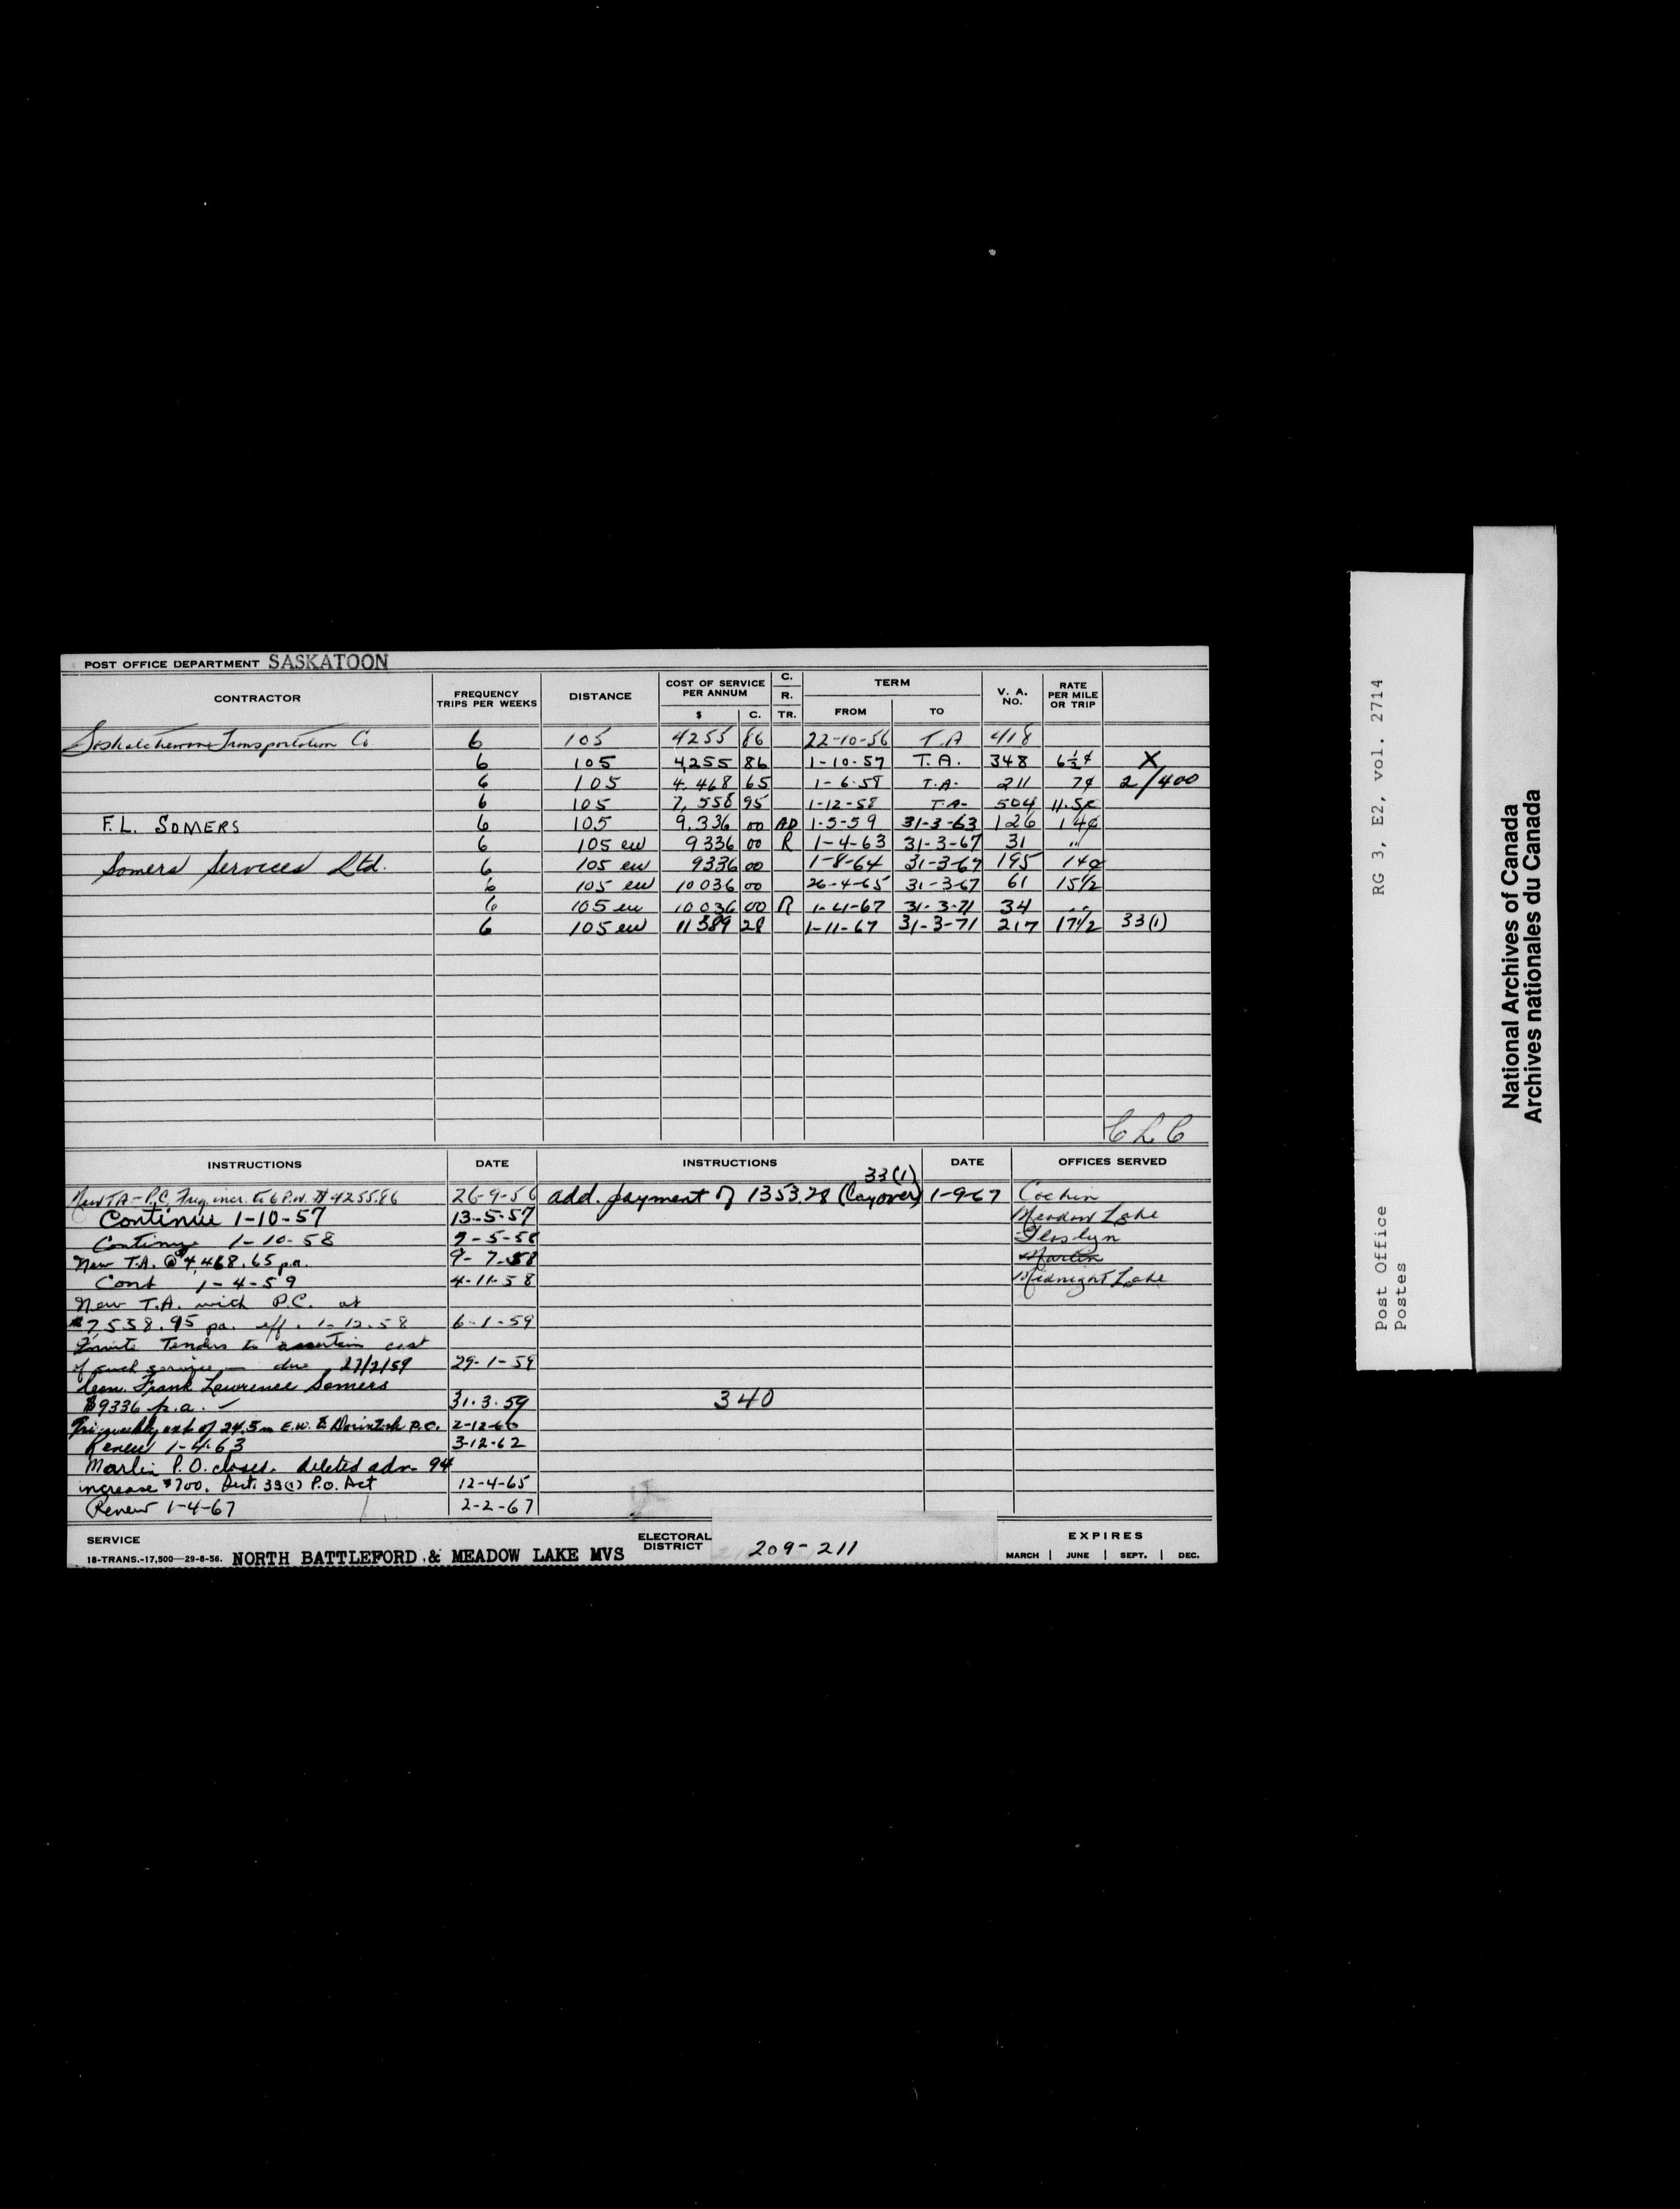 POST OFFICE DEPARTMENT SASKATOON
CONTRACTOR FREQUENCY TRIPS PER WEEKS DISTANCE COST OF SERVICE PER ANNUM $ C. C. R. TR. TERM FROM TO V. A. NO. RATE PER MILE OR TRIP
Saskatchewan Transportation Co 6 105 4255 86 22-10-56 T.A 418
6 105 4,255 86 1-10-57 T.A. 348 6½¢ X
6 105 4,468 65 1-6-58 T.A. 211 7¢ 2/400
6 105 7,558 95 1-12-58 T.A- 504 11.5¢
F.L. SOMERS 6 105 9,336 00 AD 1-5-59 31-3-63 126 14¢
6 105 ew 9336 00 R 1-4-63 31-3-67 31 "
Somers Services Ltd. 6 105 ew 9336 00 1-8-64 31-3-67 195 14¢
6 105 ew 10036 00 26-4-65 31-3-67 61 15½
6 105 ew 10036 00 R 1-4-67 31-3-71 34 "
6 105 ew 11389 28 1-11-67 31-3-71 217 17½ 33(1)
C L C
INSTRUCTIONS DATE INSTRUCTIONS DATE OFFICES SERVED
33(1)
New TA - P.C. Freq. incr. to 6 P.W. $4255.86 26-9-56 add. payment of 1353.28 (layover) 1-9-67 Cochin
Continue 1-10-57 13-5-57 Meadow Lake
Continue 1-10-58 9-5-58 Glaslyn
New T.A. @ $4,468.65 p.a. 9-7-58 Marlin
Cont 1-4-59 4-11-58 Midnight Lake
New T.A. with P.C. at
$7,558.95 pa. eff. 1-12-58 6-1-59
Invite Tenders to ascertain cost
of such service - due 27/2/59 29-1-59
Frank Lawrence Somers
$9336 p.a. 31.3.59 340
Tri-weekly ext of 24.5 m E.W. to Dorintosh P.O. 2-12-60
Renew 1-4-63 3-12-62
Marlin P.O. closed. deleted adv. 94
increase $700. Sect. 33(1) P.O. Act 12-4-65
Renew 1-4-67 2-2-67
SERVICE
18-TRANS.-17,500—29-8-56. NORTH BATTLEFORD & MEADOW LAKE MVS ELECTORAL DISTRICT 209-211 EXPIRES MARCH | JUNE | SEPT. | DEC.
RG 3, E2, vol. 2714
Post Office
Postes
National Archives of Canada
Archives nationales du Canada